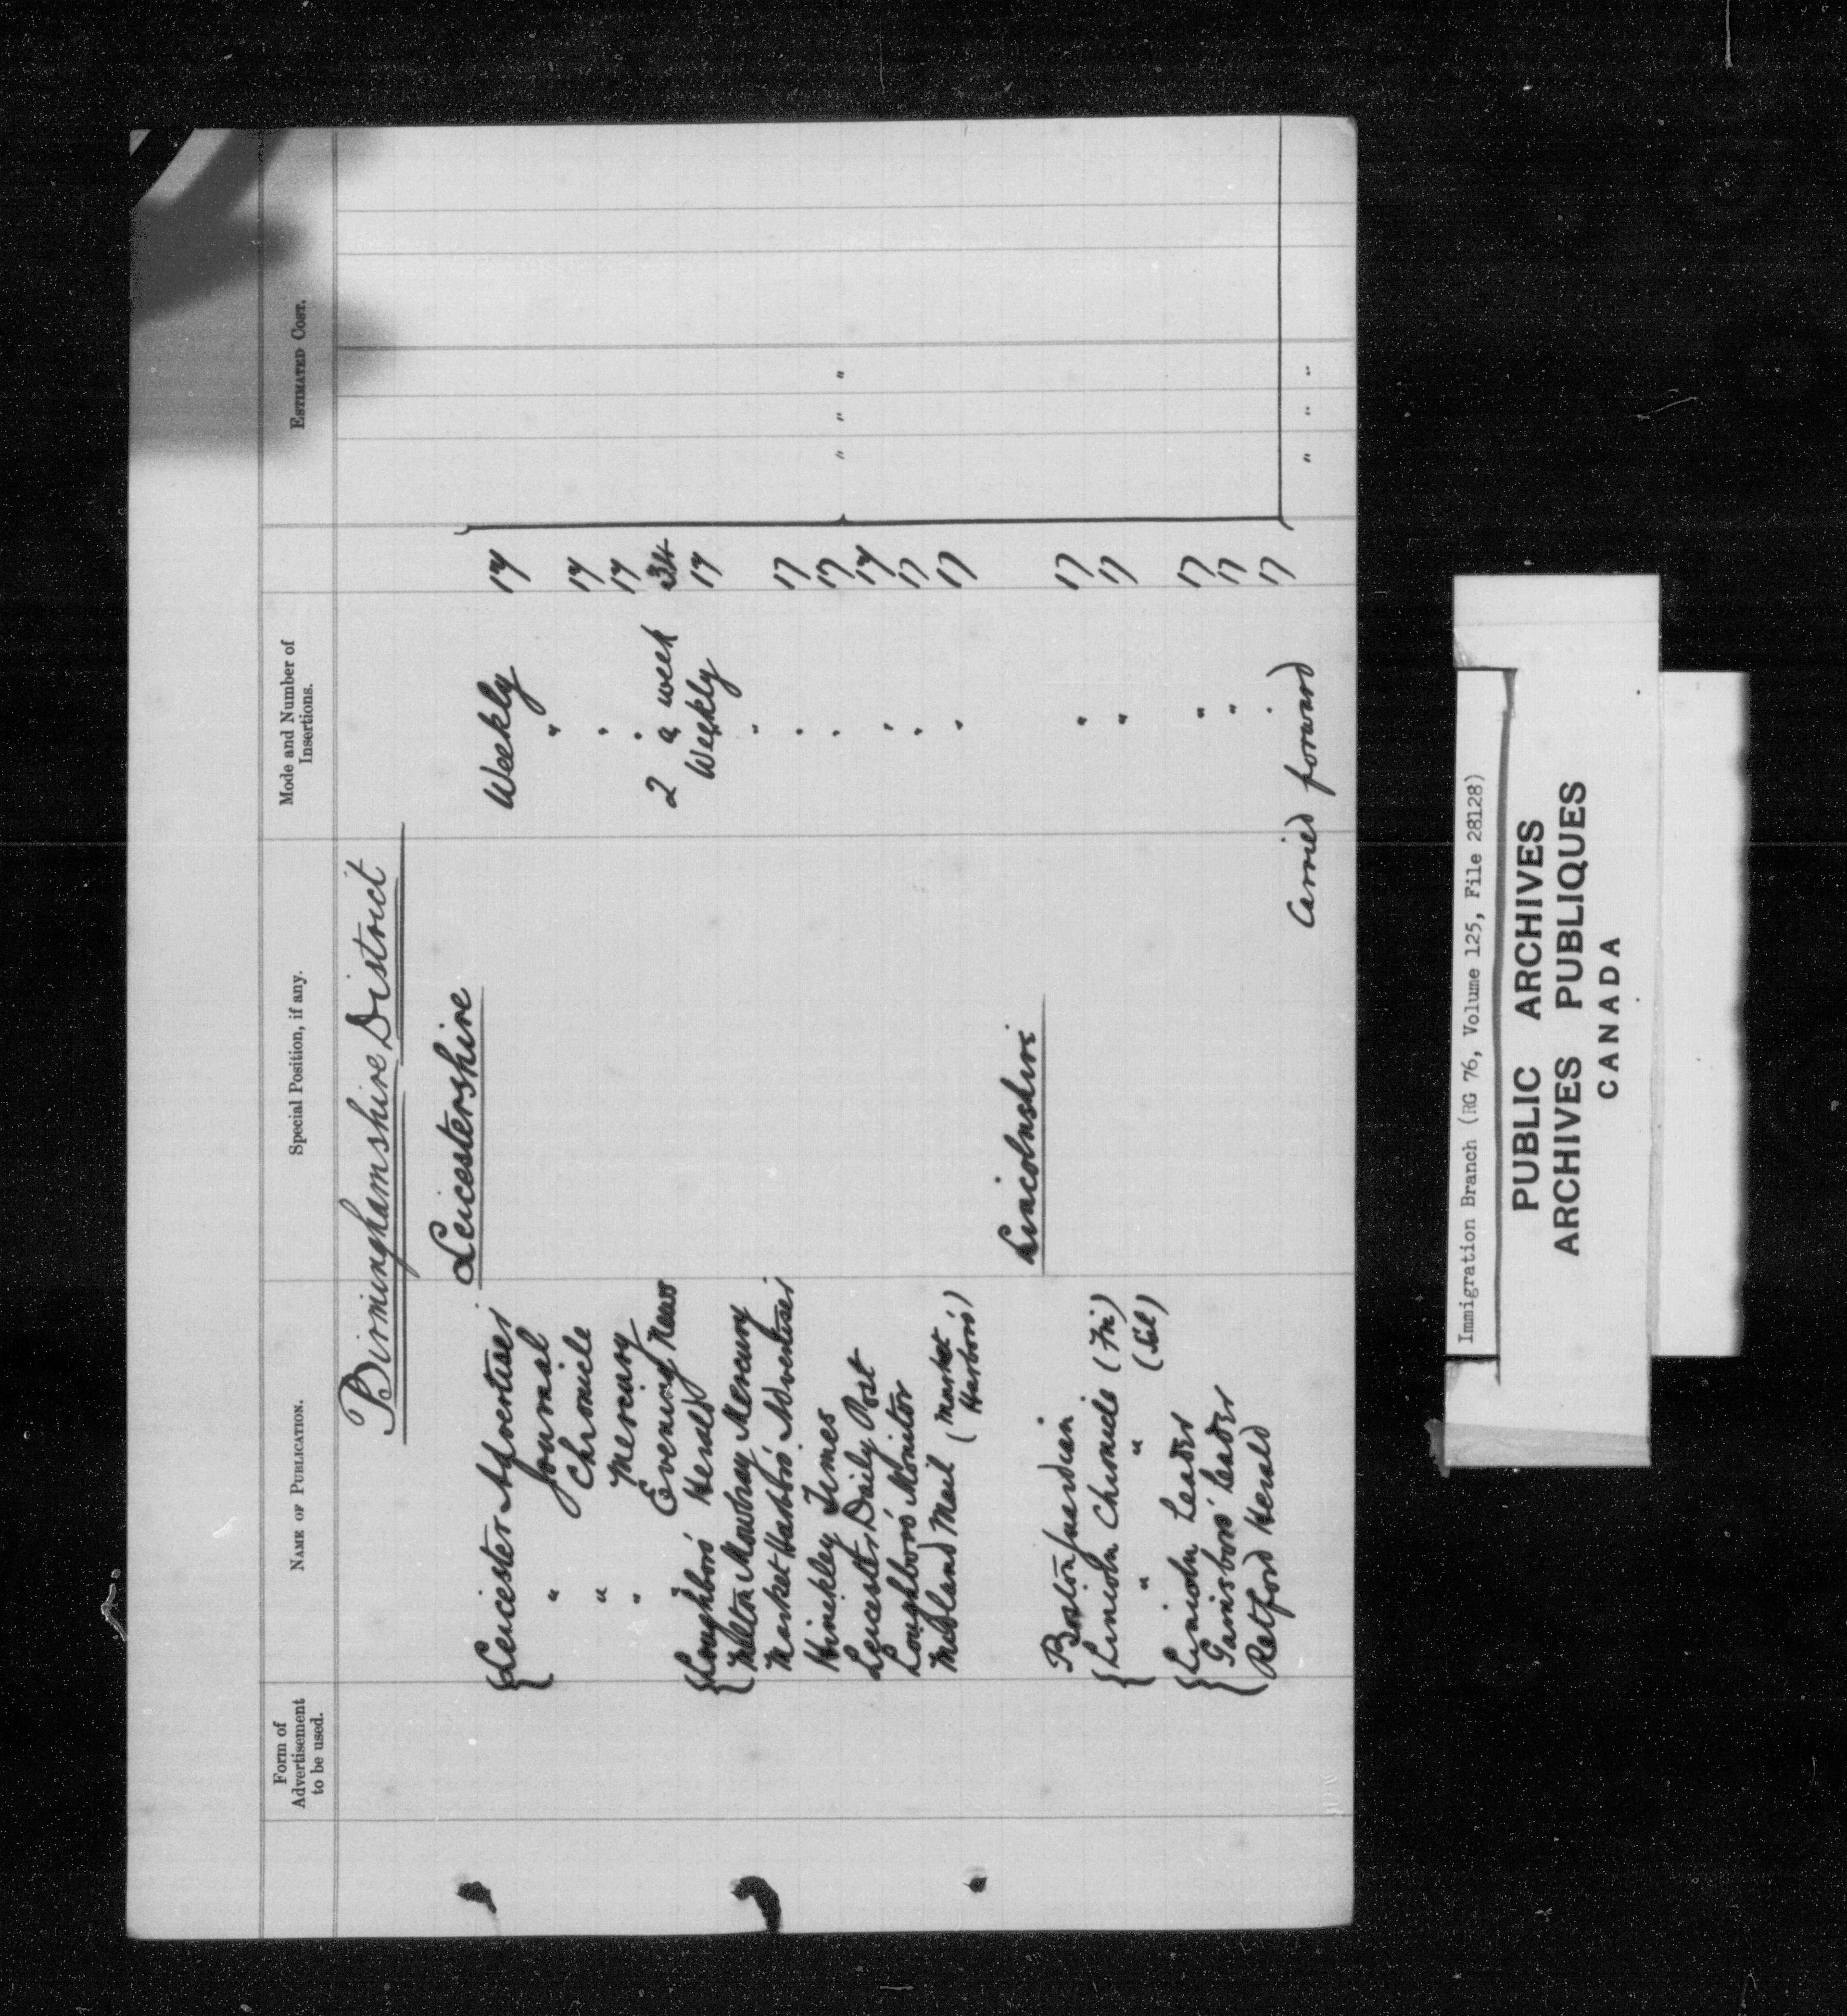 Form of Advertisement to be used.
NAME OF PUBLICATION.
Special Position, if any.
Mode and Number of Insertions.
ESTIMATED COST.
Birminghamshire District
Leicestershire
Leicester Advertiser Weekly 17
" Journal "
" Chronicle " 17
" Mercury " 17
Evening News 2 a week 34
Loughboro' Herald Weekly 17
Melton Mowbray Mercury "
Market Harboro' Advertiser " 17
Hinckley Times " 17 " " "
Leicester Daily Post " 17
Loughboro' Monitor " 17
Midland Mail (Market Harboro') " 17
Lincolnshire
Boston Guardian " 17
Lincoln Chronicle (Fri) " 17
" " (Sat)
Lincoln Leader " 17
Gainsboro' Leader " 17
Retford Herald " 17
Carried forward " " "
Immigration Branch (RG 76, Volume 125, File 28128)
PUBLIC ARCHIVES
ARCHIVES PUBLIQUES
CANADA